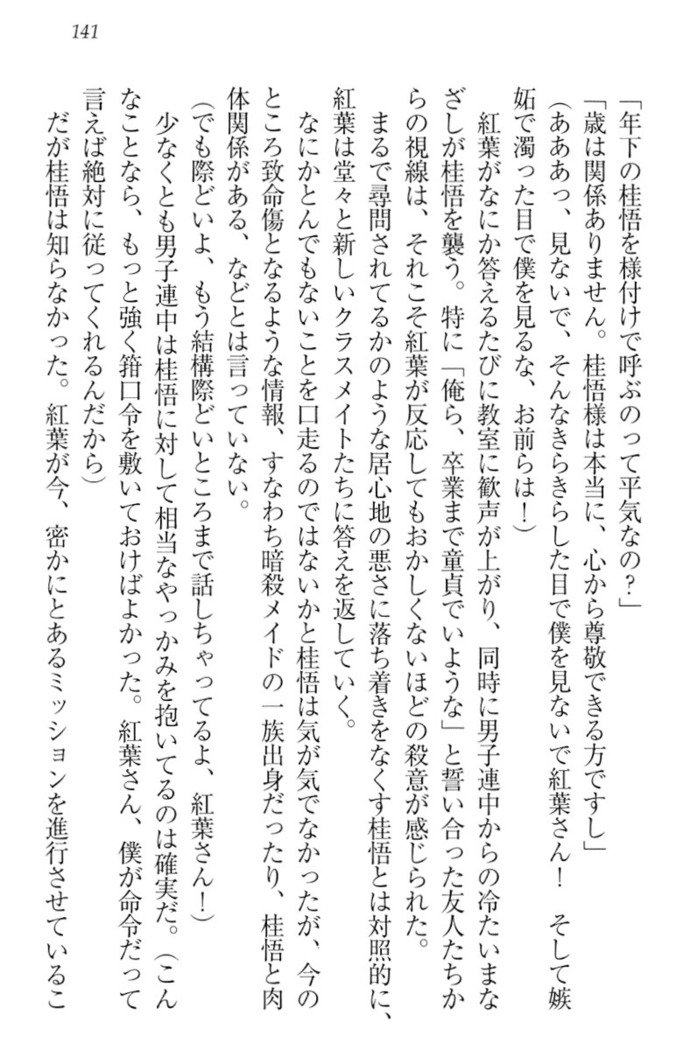 141
「年下の桂悟を様付けで呼ぶのって平気なの？」
「歳は関係ありません。桂悟様は本当に、心から尊敬できる方ですし」
（あああっ、見ないで、そんなきらきらした目で僕を見ないで紅葉さん！　そして嫉
妬で濁った目で僕を見るな、お前らは！）
　紅葉がなにか答えるたびに教室に歓声が上がり、同時に男子連中からの冷たいまな
ざしが桂悟を襲う。特に「俺ら、卒業まで童貞でいような」と誓い合った友人たちか
らの視線は、それこそ紅葉が反応してもおかしくないほどの殺意が感じられた。
　まるで尋問されてるかのような居心地の悪さに落ち着きをなくす桂悟とは対照的に、
紅葉は堂々と新しいクラスメイトたちに答えを返していく。
　なにかとんでもないことを口走るのではないかと桂悟は気が気でなかったが、今の
ところ致命傷となるような情報、すなわち暗殺メイドの一族出身だったり、桂悟と肉
体関係がある、などとは言っていない。
（でも際どいよ、もう結構際どいところまで話しちゃってるよ、紅葉さん！）
　少なくとも男子連中は桂悟に対して相当なやっかみを抱いてるのは確実だ。（こん
なことなら、もっと強く箝口令を敷いておけばよかった。紅葉さん、僕が命令だって
言えば絶対に従ってくれるんだから）
　だが桂悟は知らなかった。紅葉が今、密かにとあるミッションを進行させているこ